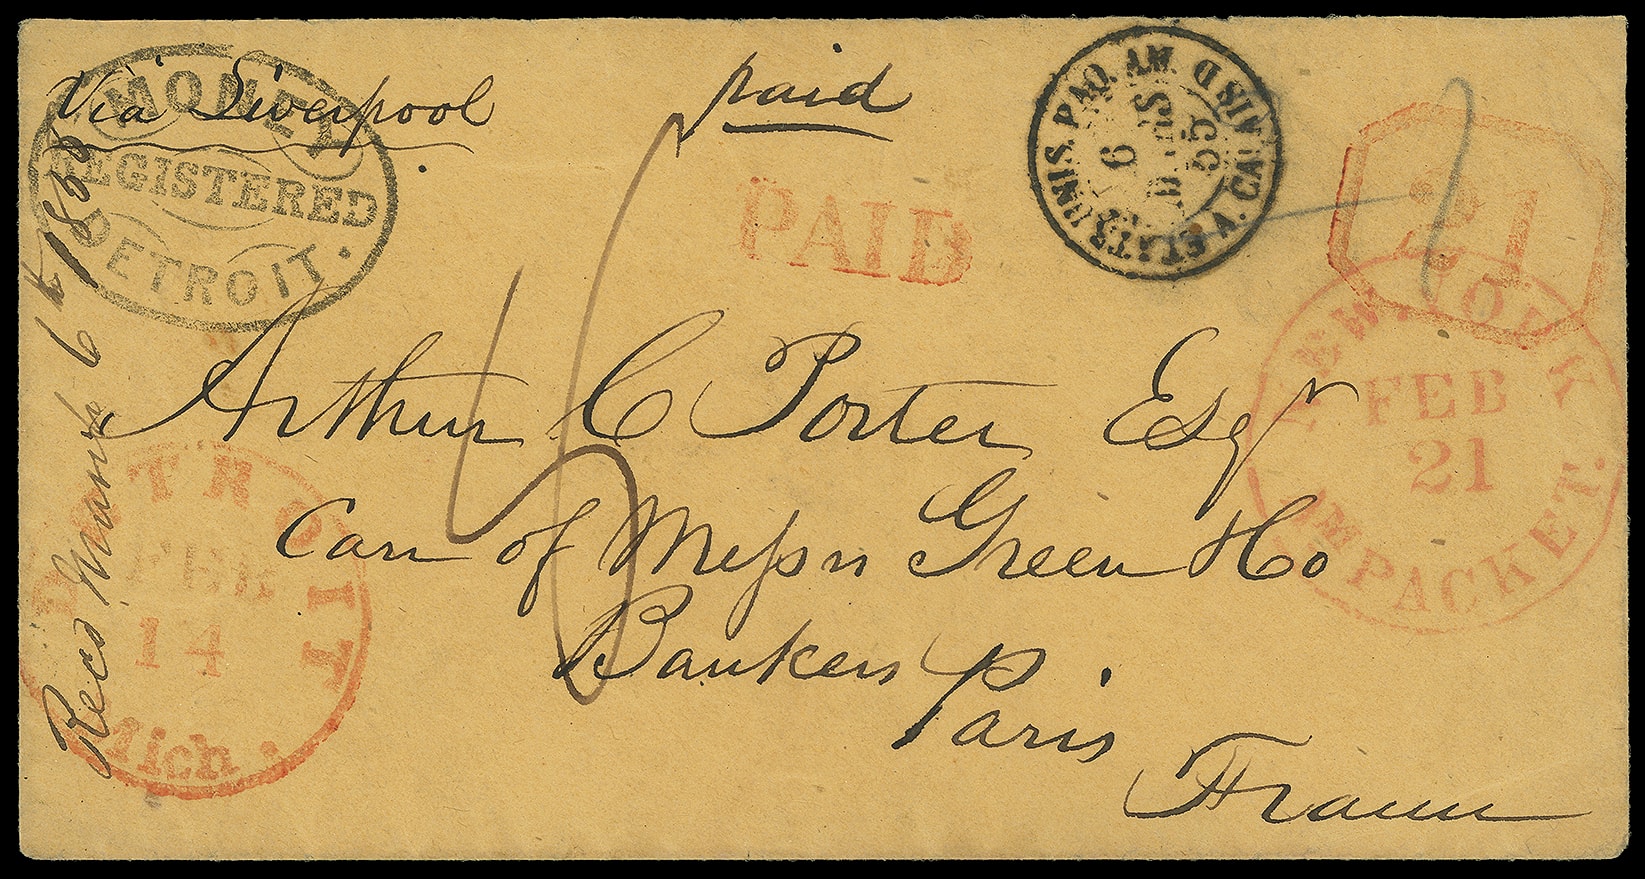 Via Liverpool
paid
MONEY
REGISTERED
DETROIT.
PAID
ETATS UNIS. PAQ. AM. V. CALAIS D
6
MARS
55
21
NEW. YORK
FEB
21
AM PACKET.
Arthur C Porter Esqr
Care of Messrs Green & Co
Bankers
Paris
France
DETROIT
FEB
14
Mich.
Recd March 6th 1855